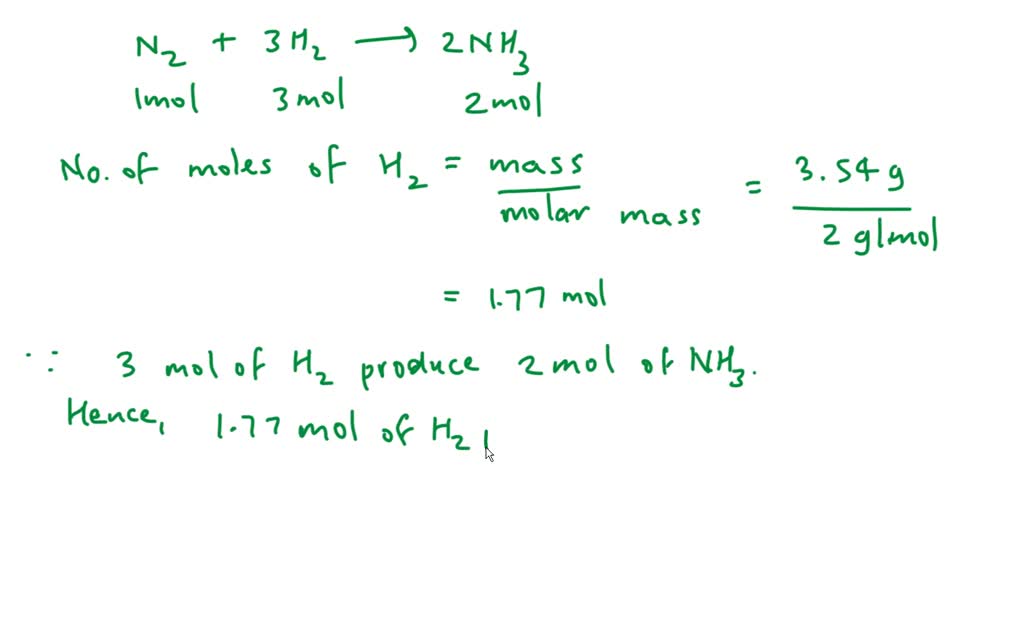 N₂ + 3H₂ ⟶ 2NH₃
1mol 3mol 2mol
No. of moles of H₂ = mass / molar mass = 3.54g / 2 g/mol
= 1.77 mol
∵ 3 mol of H₂ produce 2mol of NH₃.
Hence, 1.77 mol of H₂